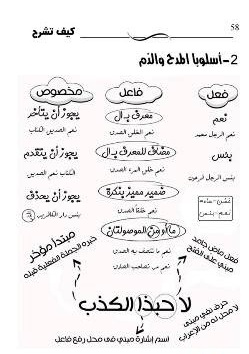 58
كيف تشرح
2-أسلوبا المدح والذم
فعل
فاعل
مخصوص
نعم
معرف بـ ال
يجوز أن يتأخر
نعم الرجل محمد
نعم الخلق الصدق
نعم الصديق الكتاب
بئس
مضاف للمعرف بـ ال
يجوز أن يتقدم
بئس الرجل فرعون
نعم خلق المرء الصدق
الكتاب نعم الصديق
ضمير مميز بنكرة
يجوز أن يحذف
نعم خلقًا الصدق
بئس دار الكافرين
ما أو من الموصولتان
نعم ما تتصف به الصدق
نعم من تصاحب الصادق
فعل ماض جامد مبني على الفتح
مبتدأ مؤخر
خبره الجملة الفعلية قبله
لا حبذا الكذب
حرف نفي مبني لا محل له من الإعراب
اسم إشارة مبني في محل رفع فاعل